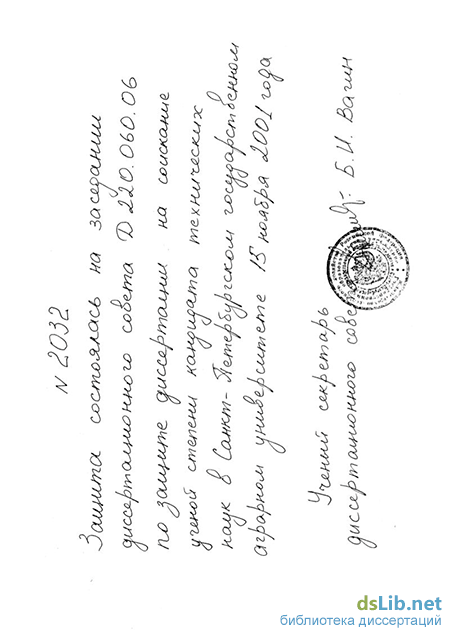 N 2032
Защита состоялась на заседании
диссертационного совета Д 220.060.06
по защите диссертации на соискание
ученой степени кандидата технических
наук в Санкт-Петербургском государственном
аграрном университете 15 ноября 2001 года
Ученый секретарь
диссертационного сове Б.И. Вагин
dsLib.net
библиотека диссертаций